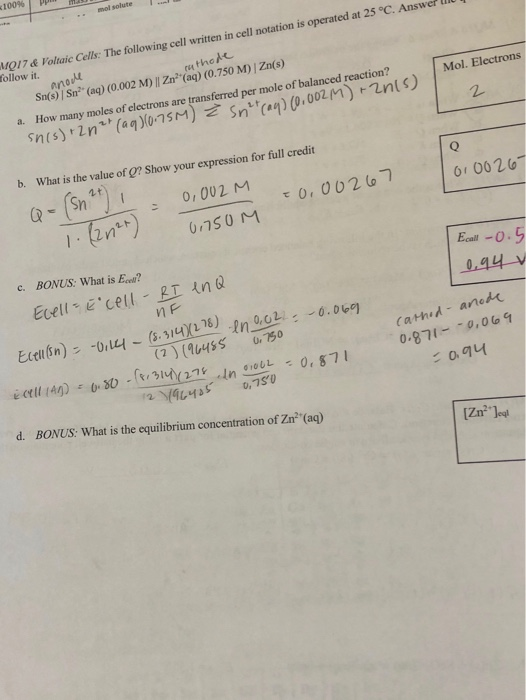 100%
mol solute
MQ17 & Voltaic Cells: The following cell written in cell notation is operated at 25 °C. Answer
follow it.
anode cathode
Sn(s) | Sn²⁺ (aq) (0.002 M) || Zn²⁺(aq) (0.750 M) | Zn(s)
a. How many moles of electrons are transferred per mole of balanced reaction?
Sn(s) + Zn²⁺ (aq)(0.75M) ⇌ Sn²⁺(aq)(0.002M) + Zn(s)
Mol. Electrons
2
b. What is the value of Q? Show your expression for full credit
Q = [Sn²⁺] 1 / 1 · [Zn²⁺) = 0,002 M / 0,750 M = 0,00267
Q
0,0026
c. BONUS: What is Ecell?
Ecell -0.5
0.94 V
Ecell = E°cell - RT/nF ln Q
Ecell(Sn) = -0,14 - (8.314)(298)/(2)(96485 ln 0,02/0,750 = -0.069
cathod - anode
0.871 - -0,069
= 0.94
= 0.80 - (8.314)(298/(2)(96485 ln 0.002/0,750 = 0,871
d. BONUS: What is the equilibrium concentration of Zn²⁺(aq)
[Zn²⁺]eql